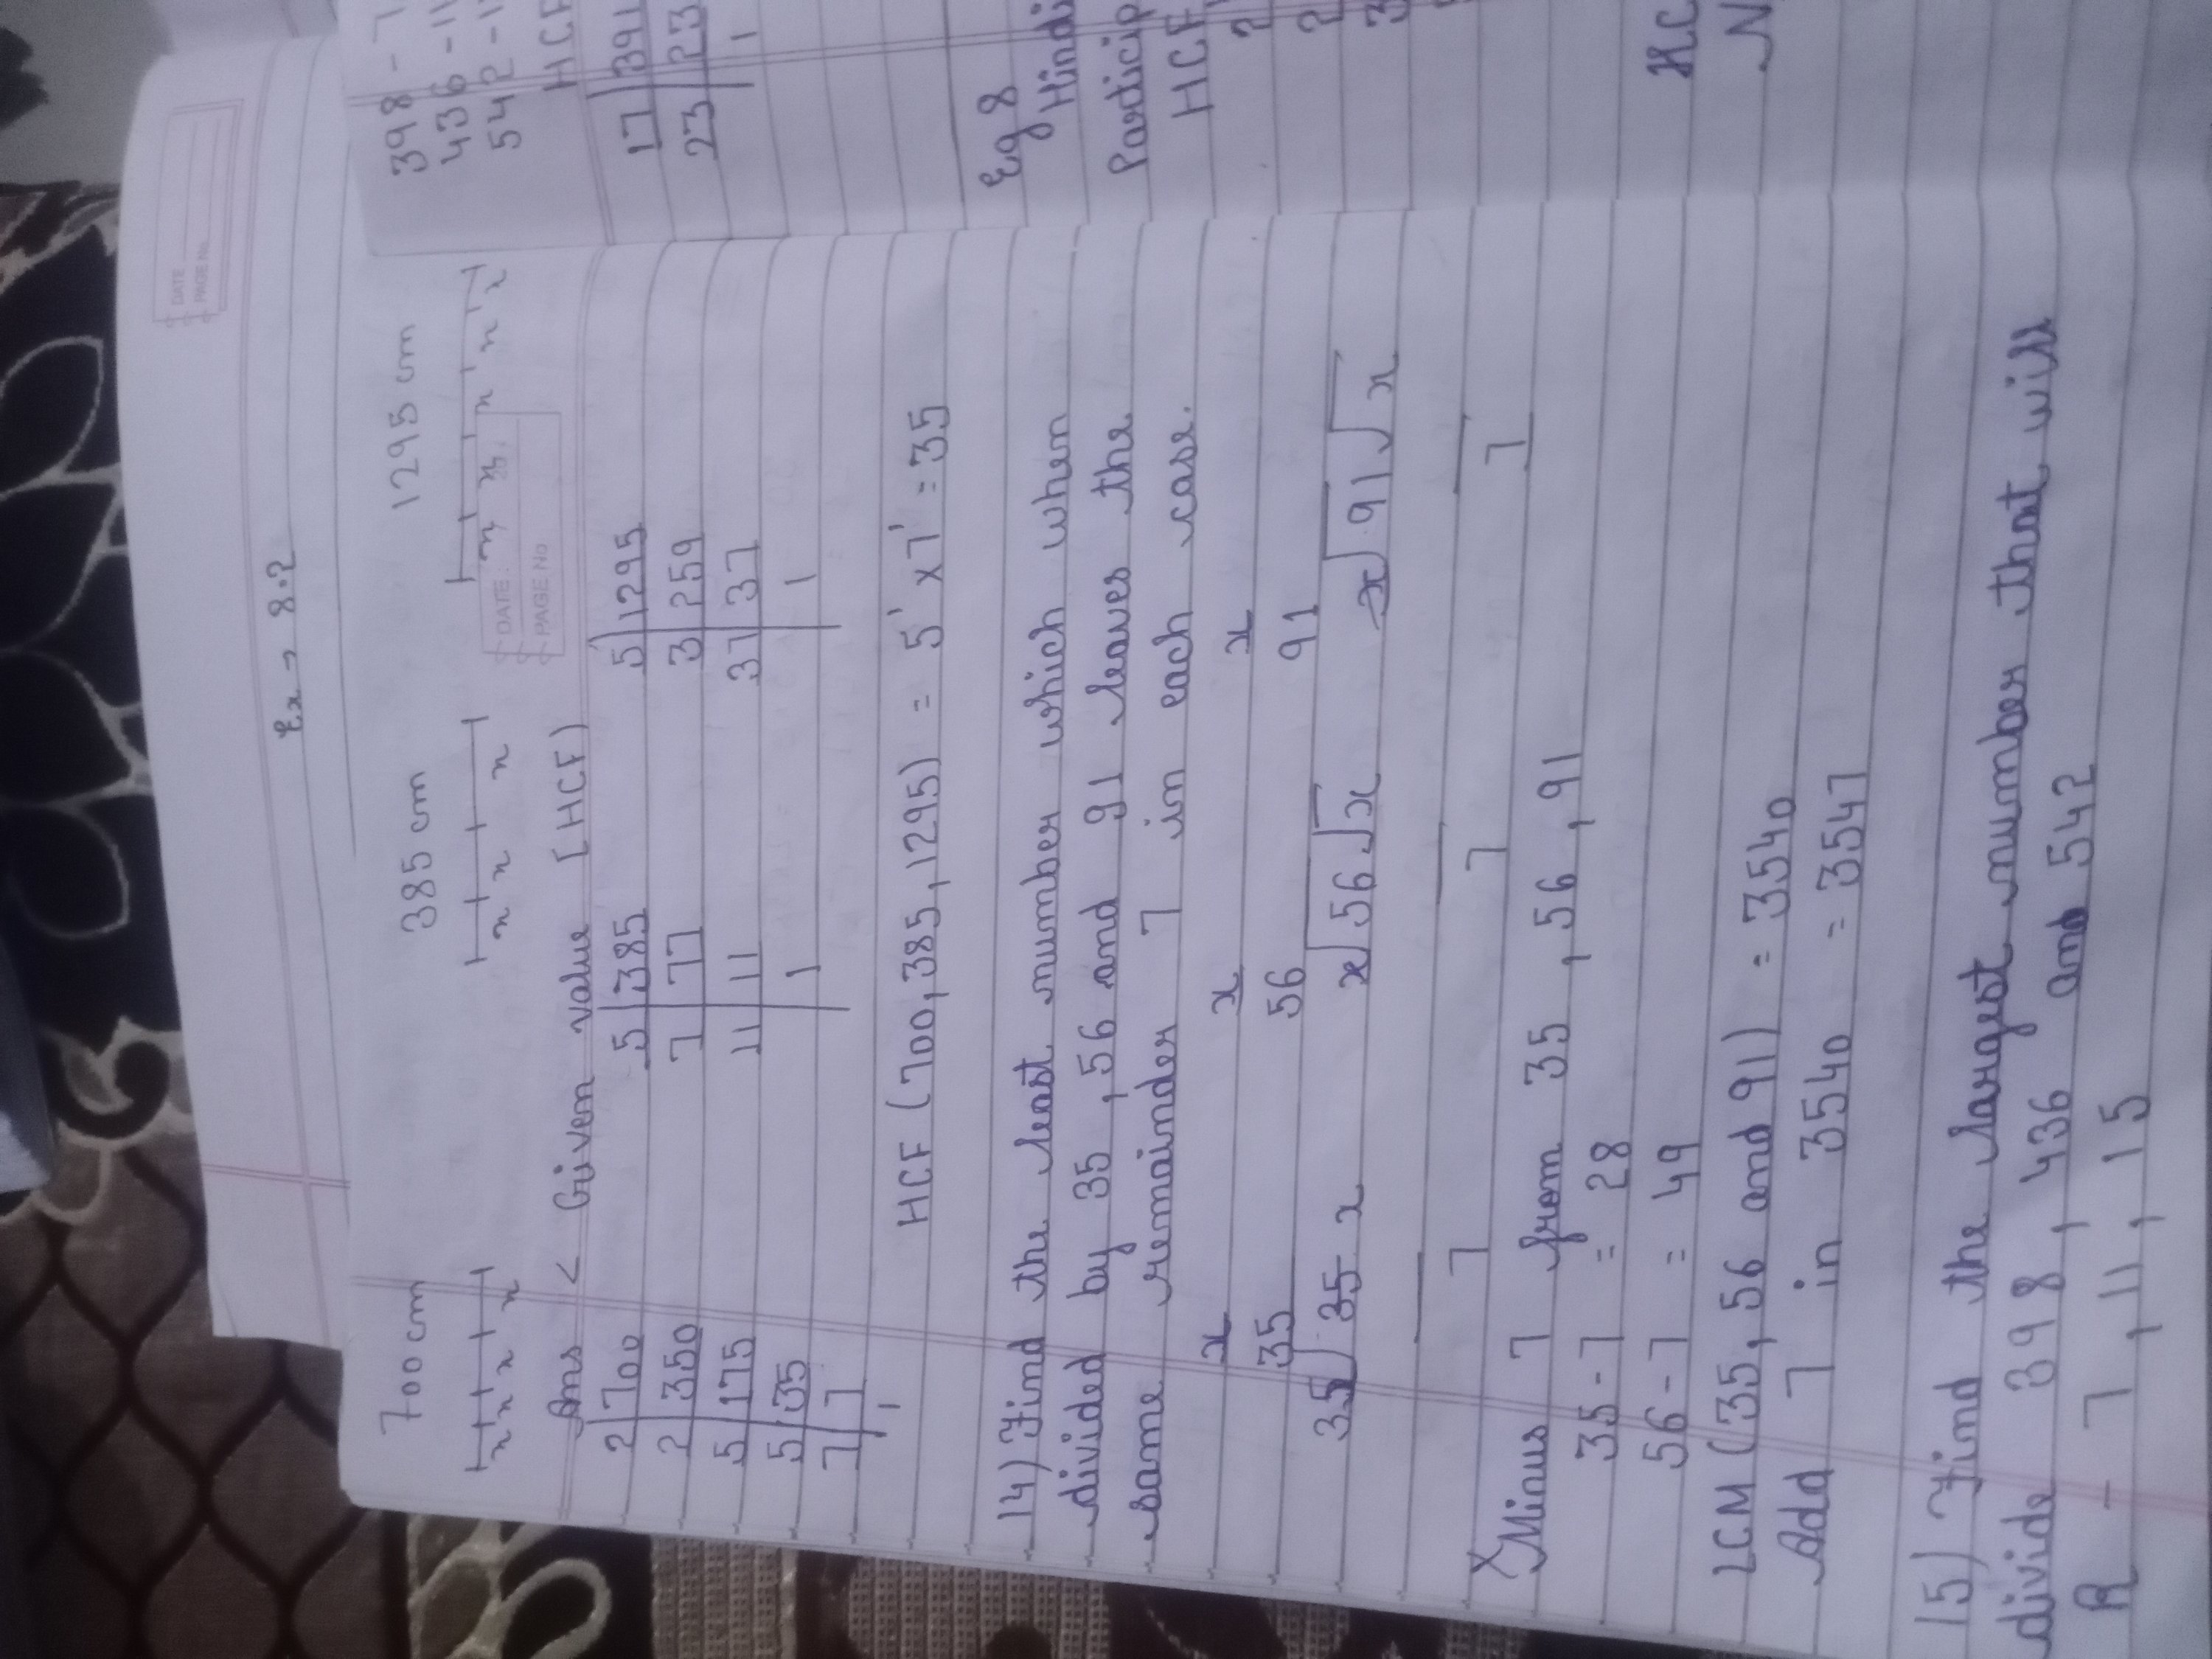 DATE
PAGE No.
Ex → 8.2
700 cm 385 cm 1295 cm
x x x x x x x x x x x
DATE:
PAGE No
Ans < Given value [HCF]
2 700 5 385 5 1295
2 350 7 77 3 259
5 175 11 11 37 37
5 35 1 1
7 7
1
HCF (700,385,1295) = 5' x 7' = 35
14) Find the least number which when
divided by 35, 56 and 91 leaves the
same remainder 7 in each case.
x x x
35 56 91
35 35 x x 56 x x 91 x
7 7 7
X Minus 7 from 35, 56, 91
35 - 7 = 28
56 - 7 = 49
LCM (35, 56 and 91) = 3540
Add 7 in 3540 = 3547
15) Find the largest number that will
divide 398, 436 and 542
R - 7, 11, 15
398 - 7
436 - 11
542 - 1
HCF
17 391
23 23
1
Eg 8
Hindi
Particip
HCF
2
2
3
HC
N